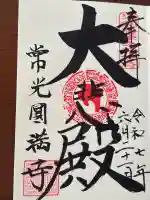 奉拝
大悲殿
令和七年
六月二十二日
常光圓満寺